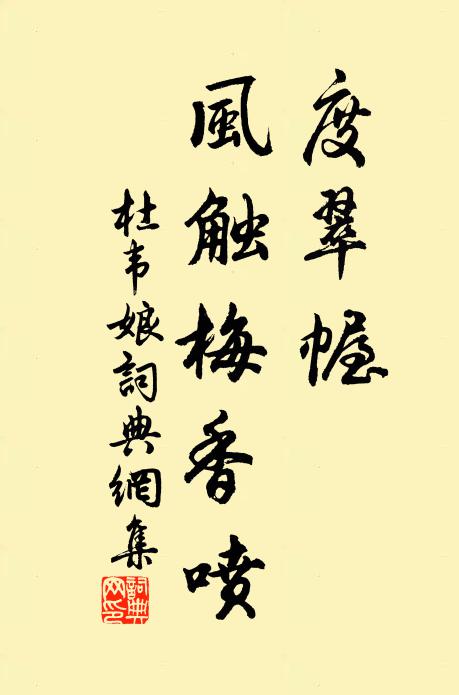 度翠幄
風触梅香噴
杜韦娘詞典網集
詞典
网印